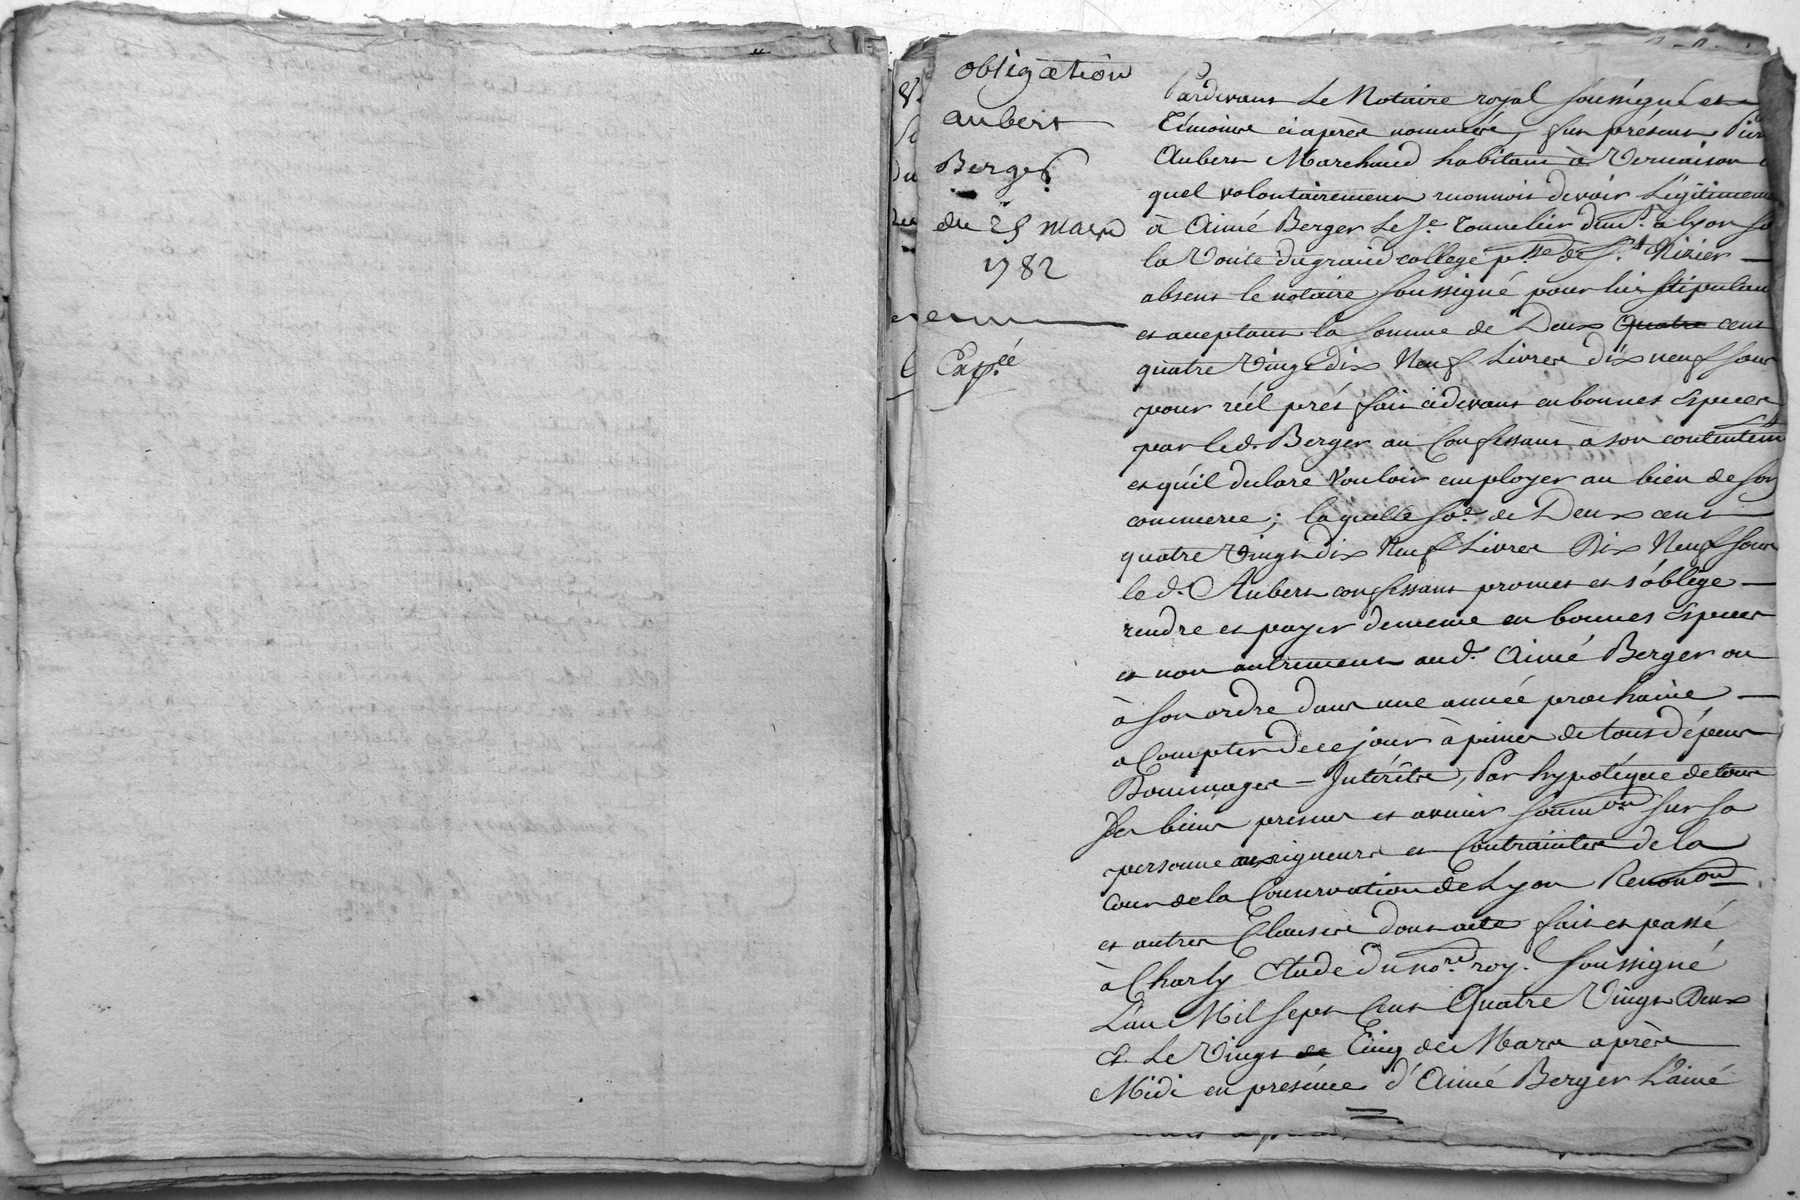 obligation
aubert
Berger
du 25 mars
1782
Exp.ée
Pardevant Le Notaire royal soussigné et
Témoins ciaprès nommés, fut présent
Aubert Marchand habitant à Vernaison
quel volontairement reconnoit devoir Légitimement
à Aimé Berger Le Je. Tonnelier dem.t à Lyon
la Voute du grand college p.sse de S.t Nizier
absent le notaire soussigné pour lui stipulant
et acceptant la somme de Deux quatre cent
quatre Vingt dix Neuf Livres dix neuf sous
pour réel prêt fait cidevant en bonnes Especes
par led. Berger au Confessant à son contentem.t
et qu'il declare Vouloir employer au bien de son
commerce; laquelle so.e de Deux cent
quatre Vingt dix Neuf Livres Dix Neuf sous
led. Aubert confessant promet et s'oblige
rendre et payer de meme en bonnes Especes
et non autrement aud. Aimé Berger ou
à son ordre dans une année prochaine
a Compter de ce jour à peine de tous dépens
Dommages Intérêts, Par hypotéque de tous
ses biens presens et avenir soum.on sur sa
personne aux rigueurs et Contraintes de la
Cour de la Conservation de Lyon Renon.on
et autres Clauses dont acte fait et passé
à Charly Etude du no.re roy. soussigné
L'an Mil sept Cent Quatre Vingt Deux
Et Le Vingt de Cinq de Mars après
Midi en presence d'Aimé Berger L'ainé